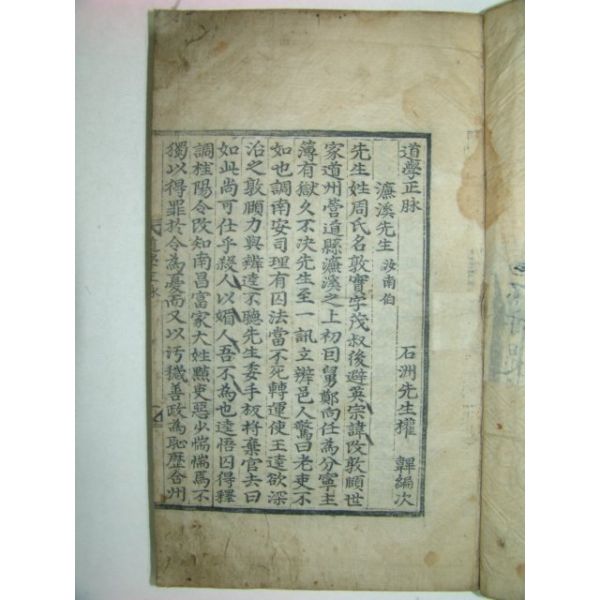 道學正脉
石洲先生權 韠編次
濂溪先生 汝南伯
先生姓周氏名敦實字茂叔後避英宗諱改敦頤世
家道州營道縣濂溪之上初因舅鄭向任爲分寧主
簿有獄久不决先生至一訊立辨邑人驚曰老吏不
如也調南安司理有囚法當不死轉運使王逵欲深
治之敦頤力與辨逵不聽先生委手板將棄官去曰
如此尚可仕乎殺人以媚人吾不為也逵悟囚得釋
調桂陽令改知南昌富家大姓黠吏惡少惴惴焉不
獨以得罪於令為憂而又以汚穢善政為恥歷合州